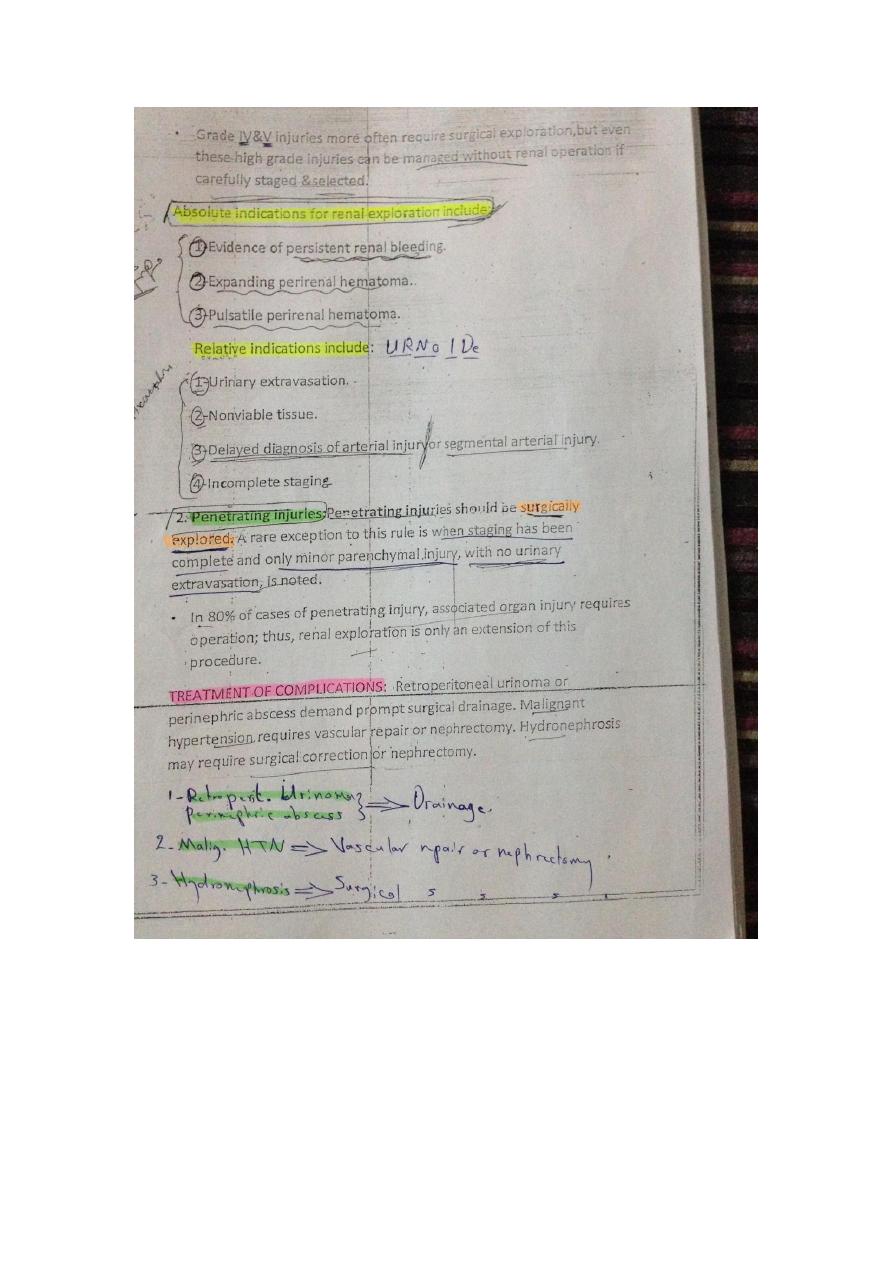 • Grade IV&V injuries more often require surgical exploration,but even
these high grade injuries can be managed without renal operation if
carefully staged &selected.
Absolute indications for renal exploration include:
1-Evidence of persistent renal bleeding.
2-Expanding perirenal hematoma..
3-Pulsatile perirenal hematoma.
Relative indications include: URNo IDe
1-Urinary extravasation.
2-Nonviable tissue.
3-Delayed diagnosis of arterial injury or segmental arterial injury.
4-Incomplete staging
2. Penetrating injuries:Penetrating injuries should be surgically
explored. A rare exception to this rule is when staging has been
complete and only minor parenchymal injury, with no urinary
extravasation, is noted.
• In 80% of cases of penetrating injury, associated organ injury requires
operation; thus, renal exploration is only an extension of this
procedure.
TREATMENT OF COMPLICATIONS: Retroperitoneal urinoma or
perinephric abscess demand prompt surgical drainage. Malignant
hypertension requires vascular repair or nephrectomy. Hydronephrosis
may require surgical correction or nephrectomy.
1- Retroperit. Urinoma
perinephric abscess } ⇒ Drainage.
2- Malig. HTN ⇒ Vascular repair or nephrectomy.
3- Hydronephrosis ⇒ Surgical